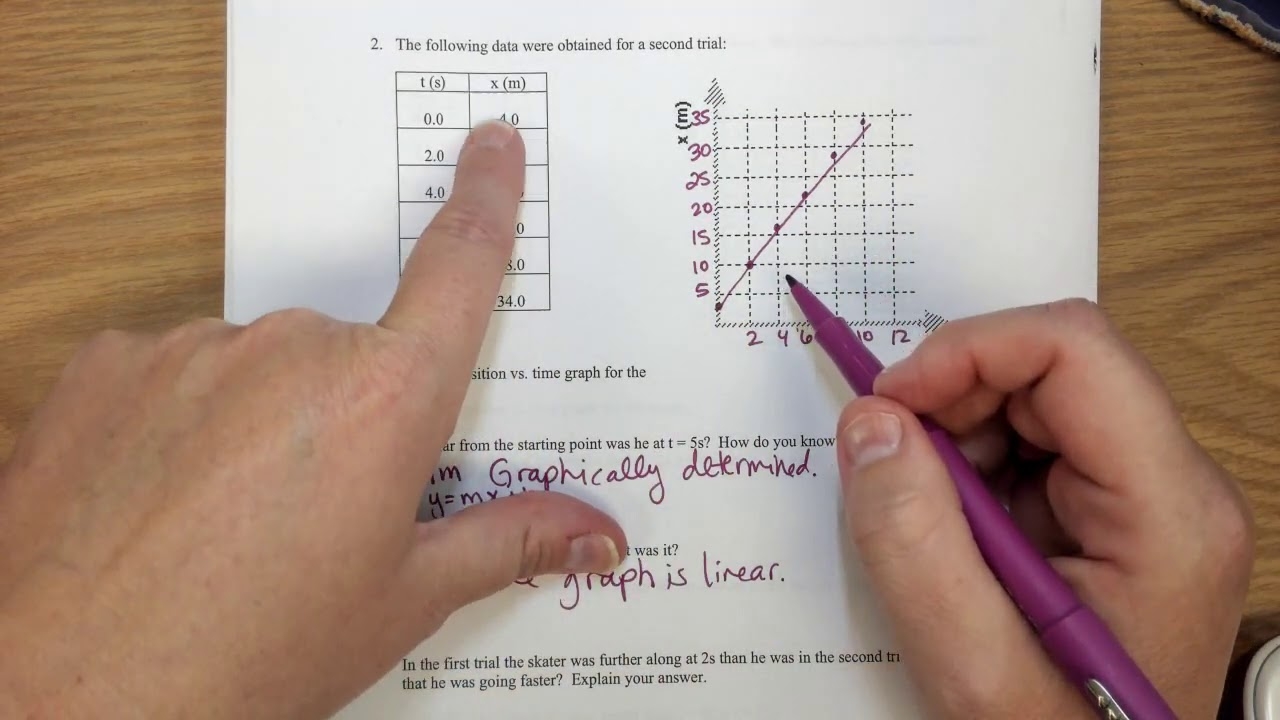 2. The following data were obtained for a second trial:
t (s) x (m)
0.0 4.0
2.0
4.0
34.0
x (m)
35
30
25
20
15
10
5
2 4 6 10 12
vs. time graph for the
from the starting point was he at t = 5s? How do you know
m Graphically determined.
y=mx
was it?
graph is linear.
In the first trial the skater was further along at 2s than he was in the second
that he was going faster? Explain your answer.